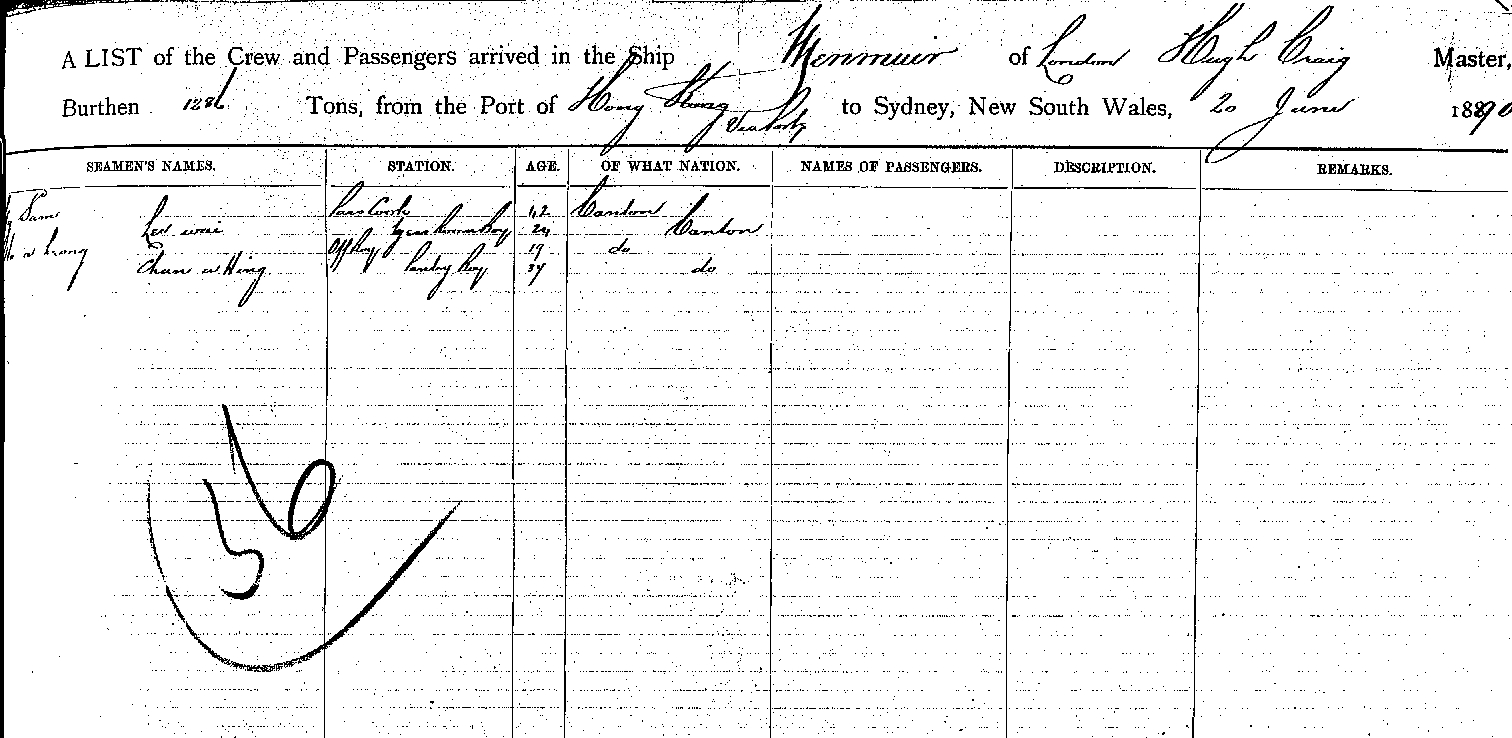 A LIST of the Crew and Passengers arrived in the Ship Menmuir of London Hugh Craig Master,
Burthen 1286 Tons, from the Port of Hong Kong via Ports to Sydney, New South Wales, 20 June 1890
SEAMEN'S NAMES. STATION. AGE. OF WHAT NATION. NAMES OF PASSENGERS. DESCRIPTION. REMARKS.
Sam Pass Cook 42 Canton
24 Canton
19 do
Chun a Hing Pantry Boy do
56